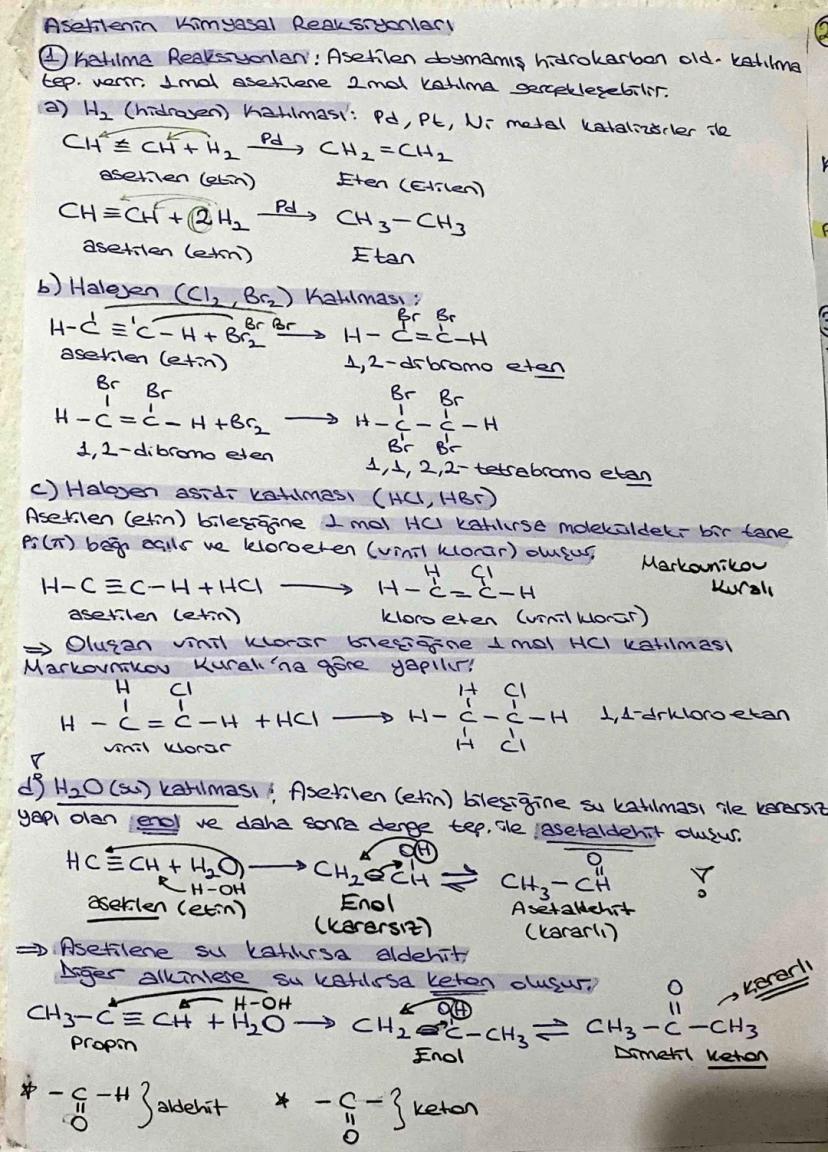 Asetilenin Kimyasal Reaksiyonları
① Katılma Reaksiyonları: Asetilen doymamış hidrokarbon old. katılma
tep. verir. 1mol asetilene 2mol katılma gerçekleşebilir.
a) H₂ (hidrojen) Katılması: Pd, Pt, Ni metal katalizörler ile
CH ≡ CH + H₂ —Pd→ CH₂ = CH₂
asetilen (etin) Eten (Etilen)
CH ≡ CH + 2 H₂ —Pd→ CH₃ — CH₃
asetilen (etin) Etan
b) Halojen (Cl₂, Br₂) Katılması:
Br Br
H-C ≡ C - H + Br₂ Br Br → H - C = C - H
asetilen (etin) 1,2-dibromo eten
Br Br Br Br
H - C = C - H + Br₂ → H - C - C - H
Br Br
1,2-dibromo eten 1,1,2,2-tetrabromo etan
c) Halojen asidi katılması (HCl, HBr)
Asetilen (etin) bileşiğine 1 mol HCl katılırsa moleküldeki bir tane
Pi(π) bağı açılır ve kloroeten (vinil klorür) oluşur.
Markovnikov
Kuralı
H Cl
H-C ≡ C-H + HCl → H - C = C - H
asetilen (etin) kloro eten (vinil klorür)
⇒ Oluşan vinil klorür bileşiğine 1 mol HCl katılması
Markovnikov Kuralı'na göre yapılır!
H Cl H Cl
H - C = C - H + HCl → H - C - C - H 1,1-dikloro etan
H Cl
vinil klorür
d) H₂O (su) katılması: Asetilen (etin) bileşiğine su katılması ile kararsız
yapı olan enol ve daha sonra denge tep. ile asetaldehit oluşur.
OH O
HC ≡ CH + H₂O → CH₂ = CH ⇌ CH₃ - CH
H-OH
asetilen (etin) Enol Asetaldehit
(kararsız) (kararlı)
⇒ Asetilene su katılırsa aldehit
Diğer alkinlere su katılırsa keton oluşur.
kararlı
H-OH OH O
CH₃-C ≡ CH + H₂O → CH₂ = C-CH₃ ⇌ CH₃ - C - CH₃
Propin Enol Dimetil keton
* - C - H } aldehit * - C - } keton
O O